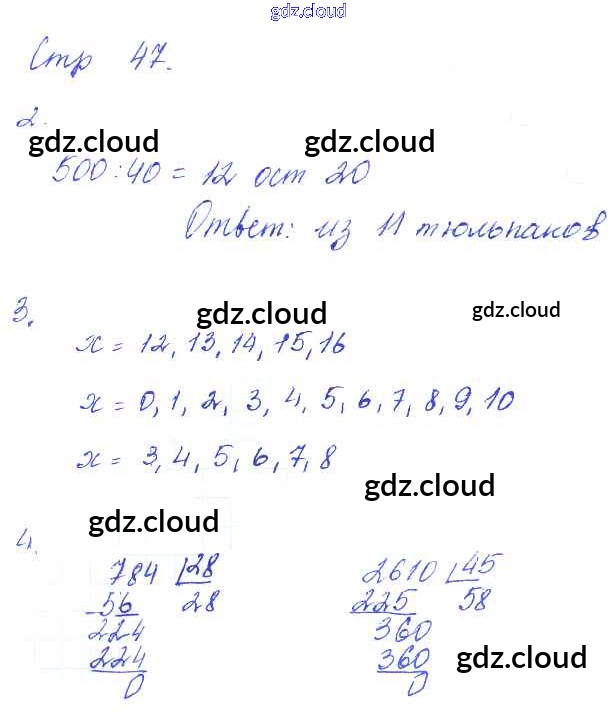 gdz.cloud
Стр 47.
2.
gdz.cloud gdz.cloud
500:40 = 12 ост 20
Ответ: из 11 тюльпанов
3.
gdz.cloud gdz.cloud
x = 12, 13, 14, 15, 16
x = 0, 1, 2, 3, 4, 5, 6, 7, 8, 9, 10
x = 3, 4, 5, 6, 7, 8
gdz.cloud
gdz.cloud
4.
784 28 2610 45
56 28 225 58
224 360
224 360 gdz.cloud
0 0